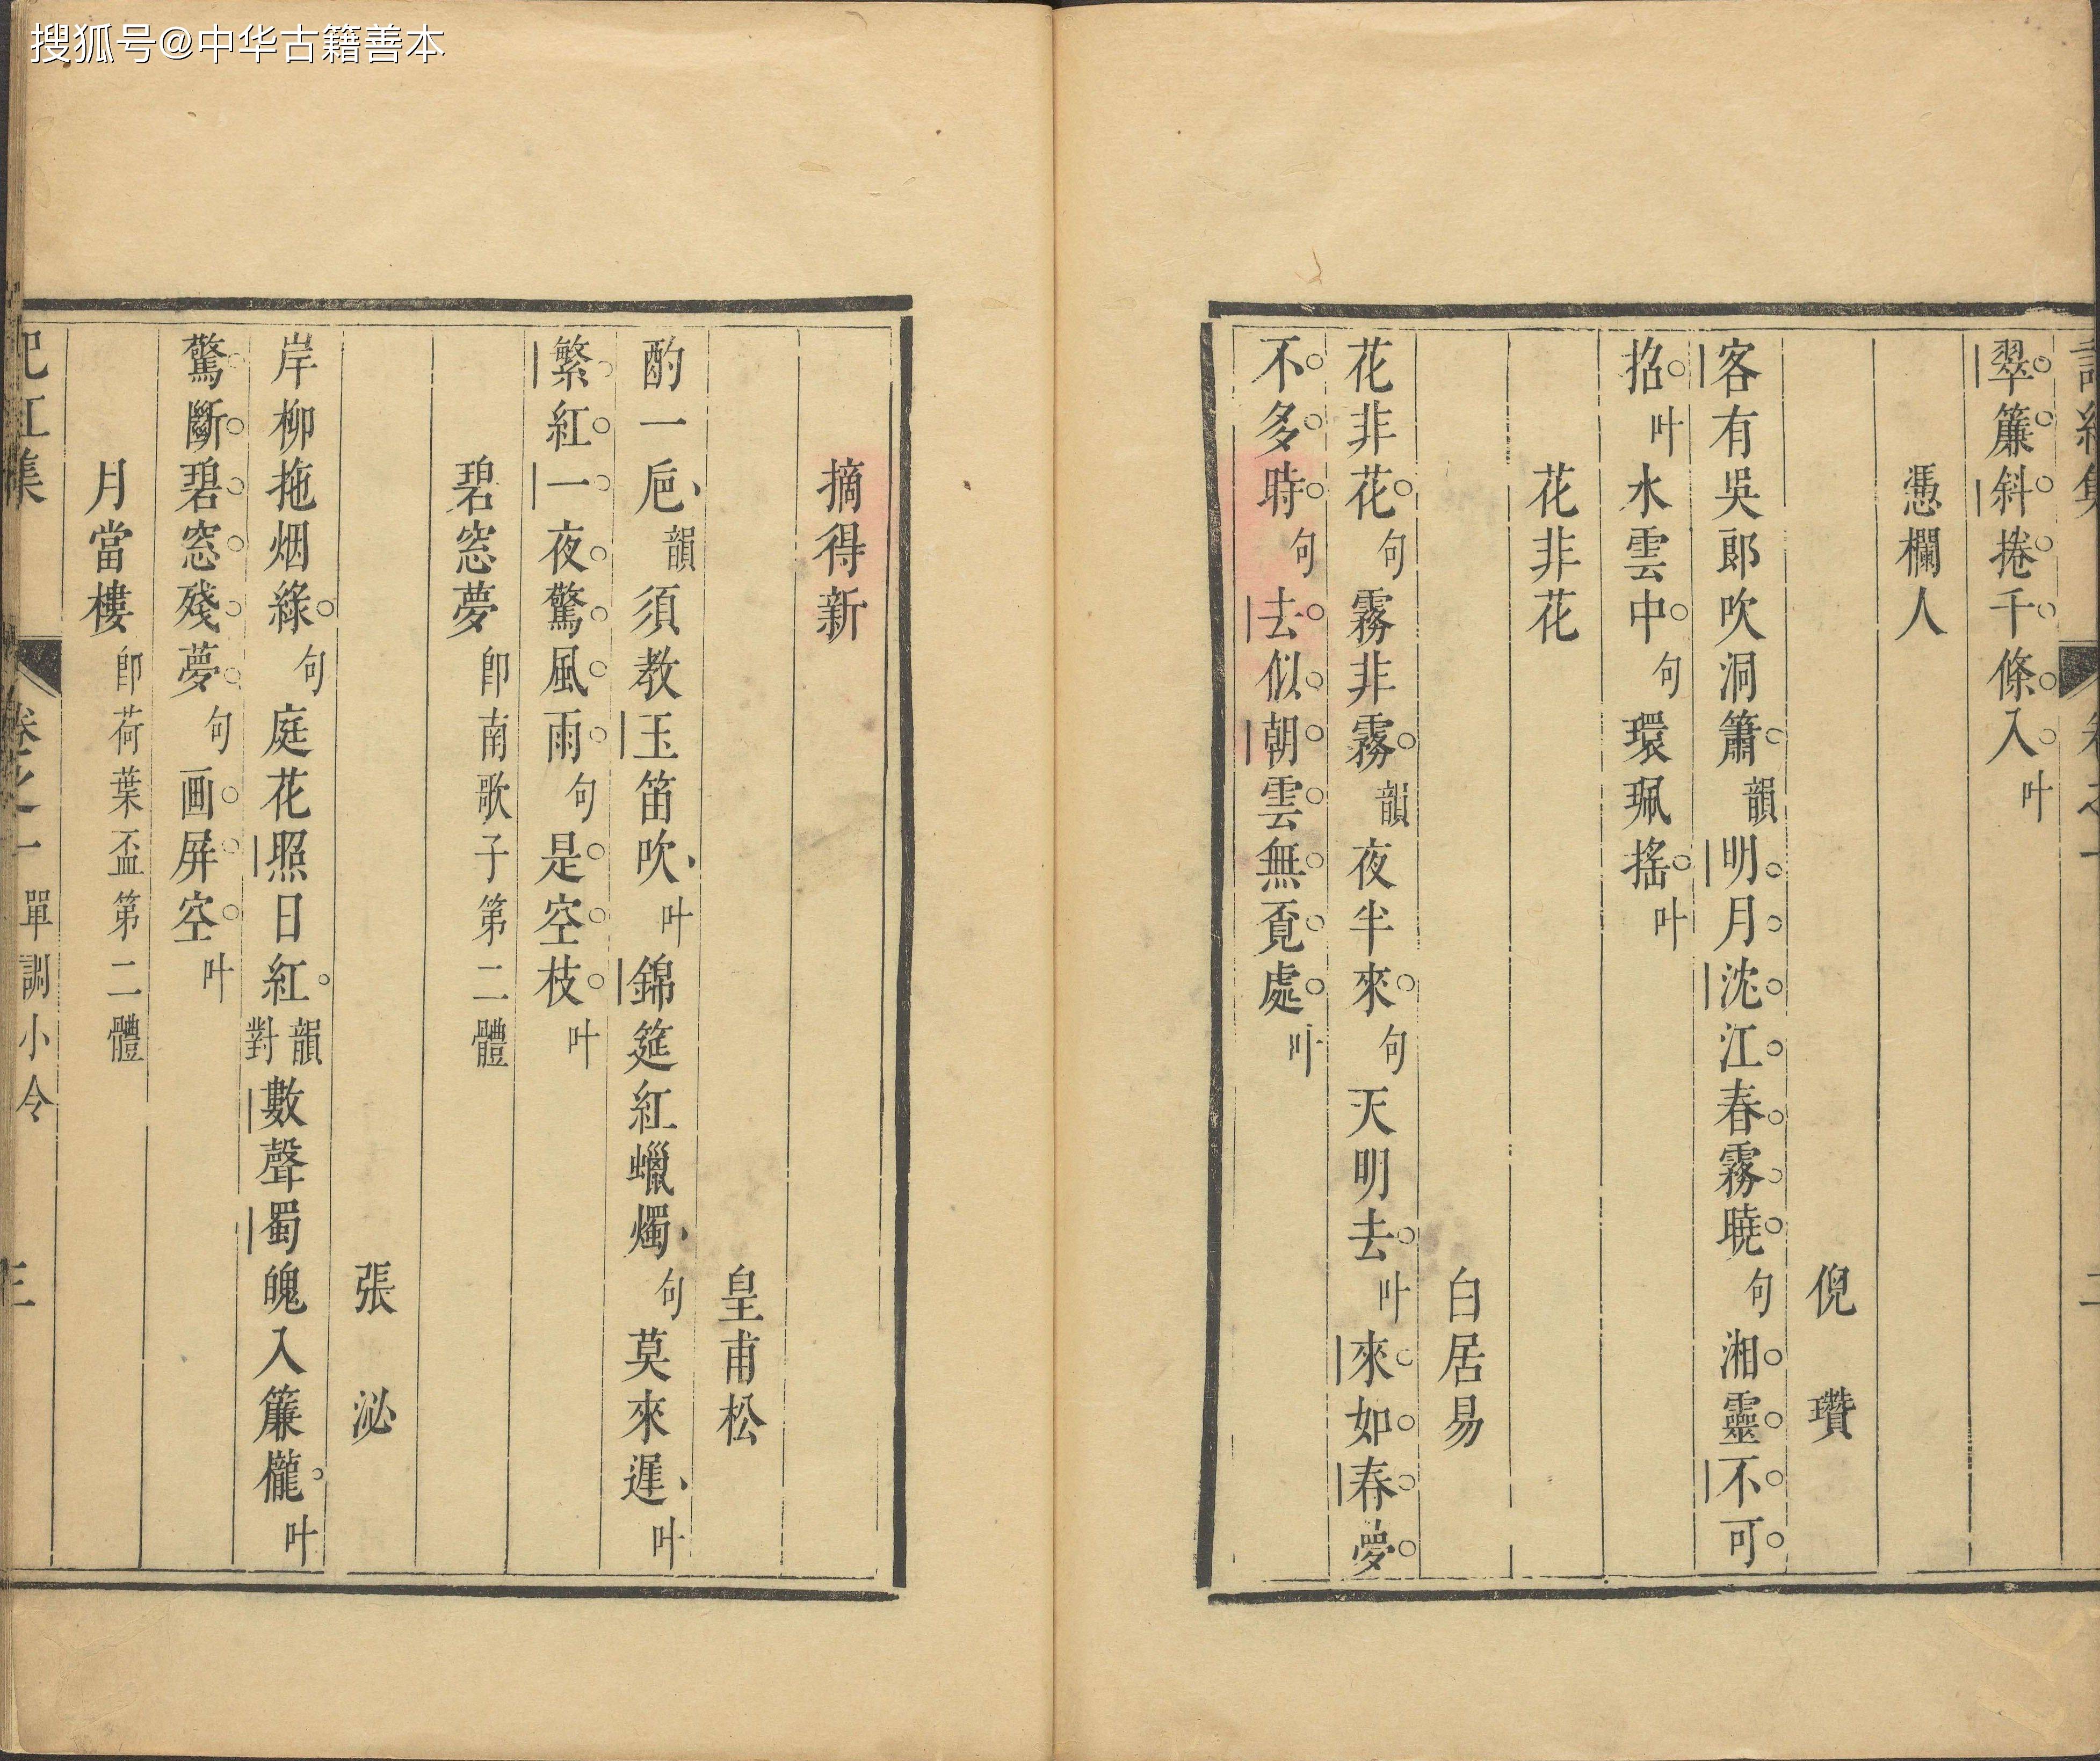 搜狐号@中华古籍善本
翠簾斜捲千條入叶
憑欄人
倪瓚
客有吳郎吹洞簫韻明月沈江春霧曉句湘靈不可
招叶水雲中句環珮搖叶
花非花
白居易
花非花句霧非霧韻夜半來句天明去叶來如春夢
不多時句去似朝雲無覔處叶
摘得新
皇甫松
酌一巵韻須教玉笛吹叶錦筵紅蠟燭句莫來遲叶
繁紅一夜驚風雨句是空枝叶
碧窓夢卽南歌子第二體
張泌
岸柳拖烟綠句庭花照日紅韻對數聲蜀魄入簾櫳叶
驚斷碧窓殘夢句画屏空叶
月當樓卽荷葉盃第二體
記紅集 卷之一 單調小令 三